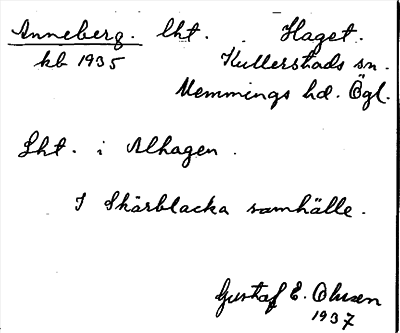 Anneberg. lht. Haget.
kb 1935 Kullerstads sn.
Memmings hd. Ögl.
Lht. i Alhagen.
I Skärblacka samhälle.
Gustaf E. Olsson
1937